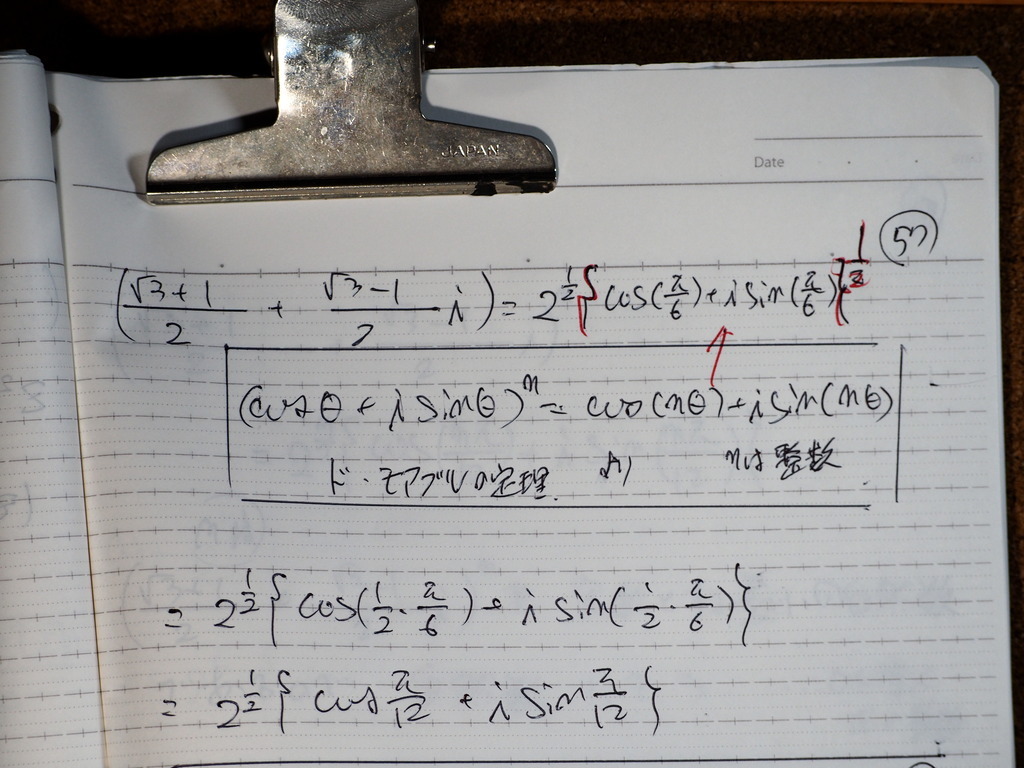 JAPAN
Date
57
(√3+1/2 + √3-1/2 i) = 2^{1/2} { cos(π/6) + i sin(π/6) }^{1/2}
(cosθ + i sinθ)^n = cos(nθ) + i sin(nθ)
ド・モアブルの定理 より nは整数
= 2^{1/2} { cos(1/2・π/6) + i sin(1/2・π/6) }
= 2^{1/2} { cos π/12 + i sin π/12 }